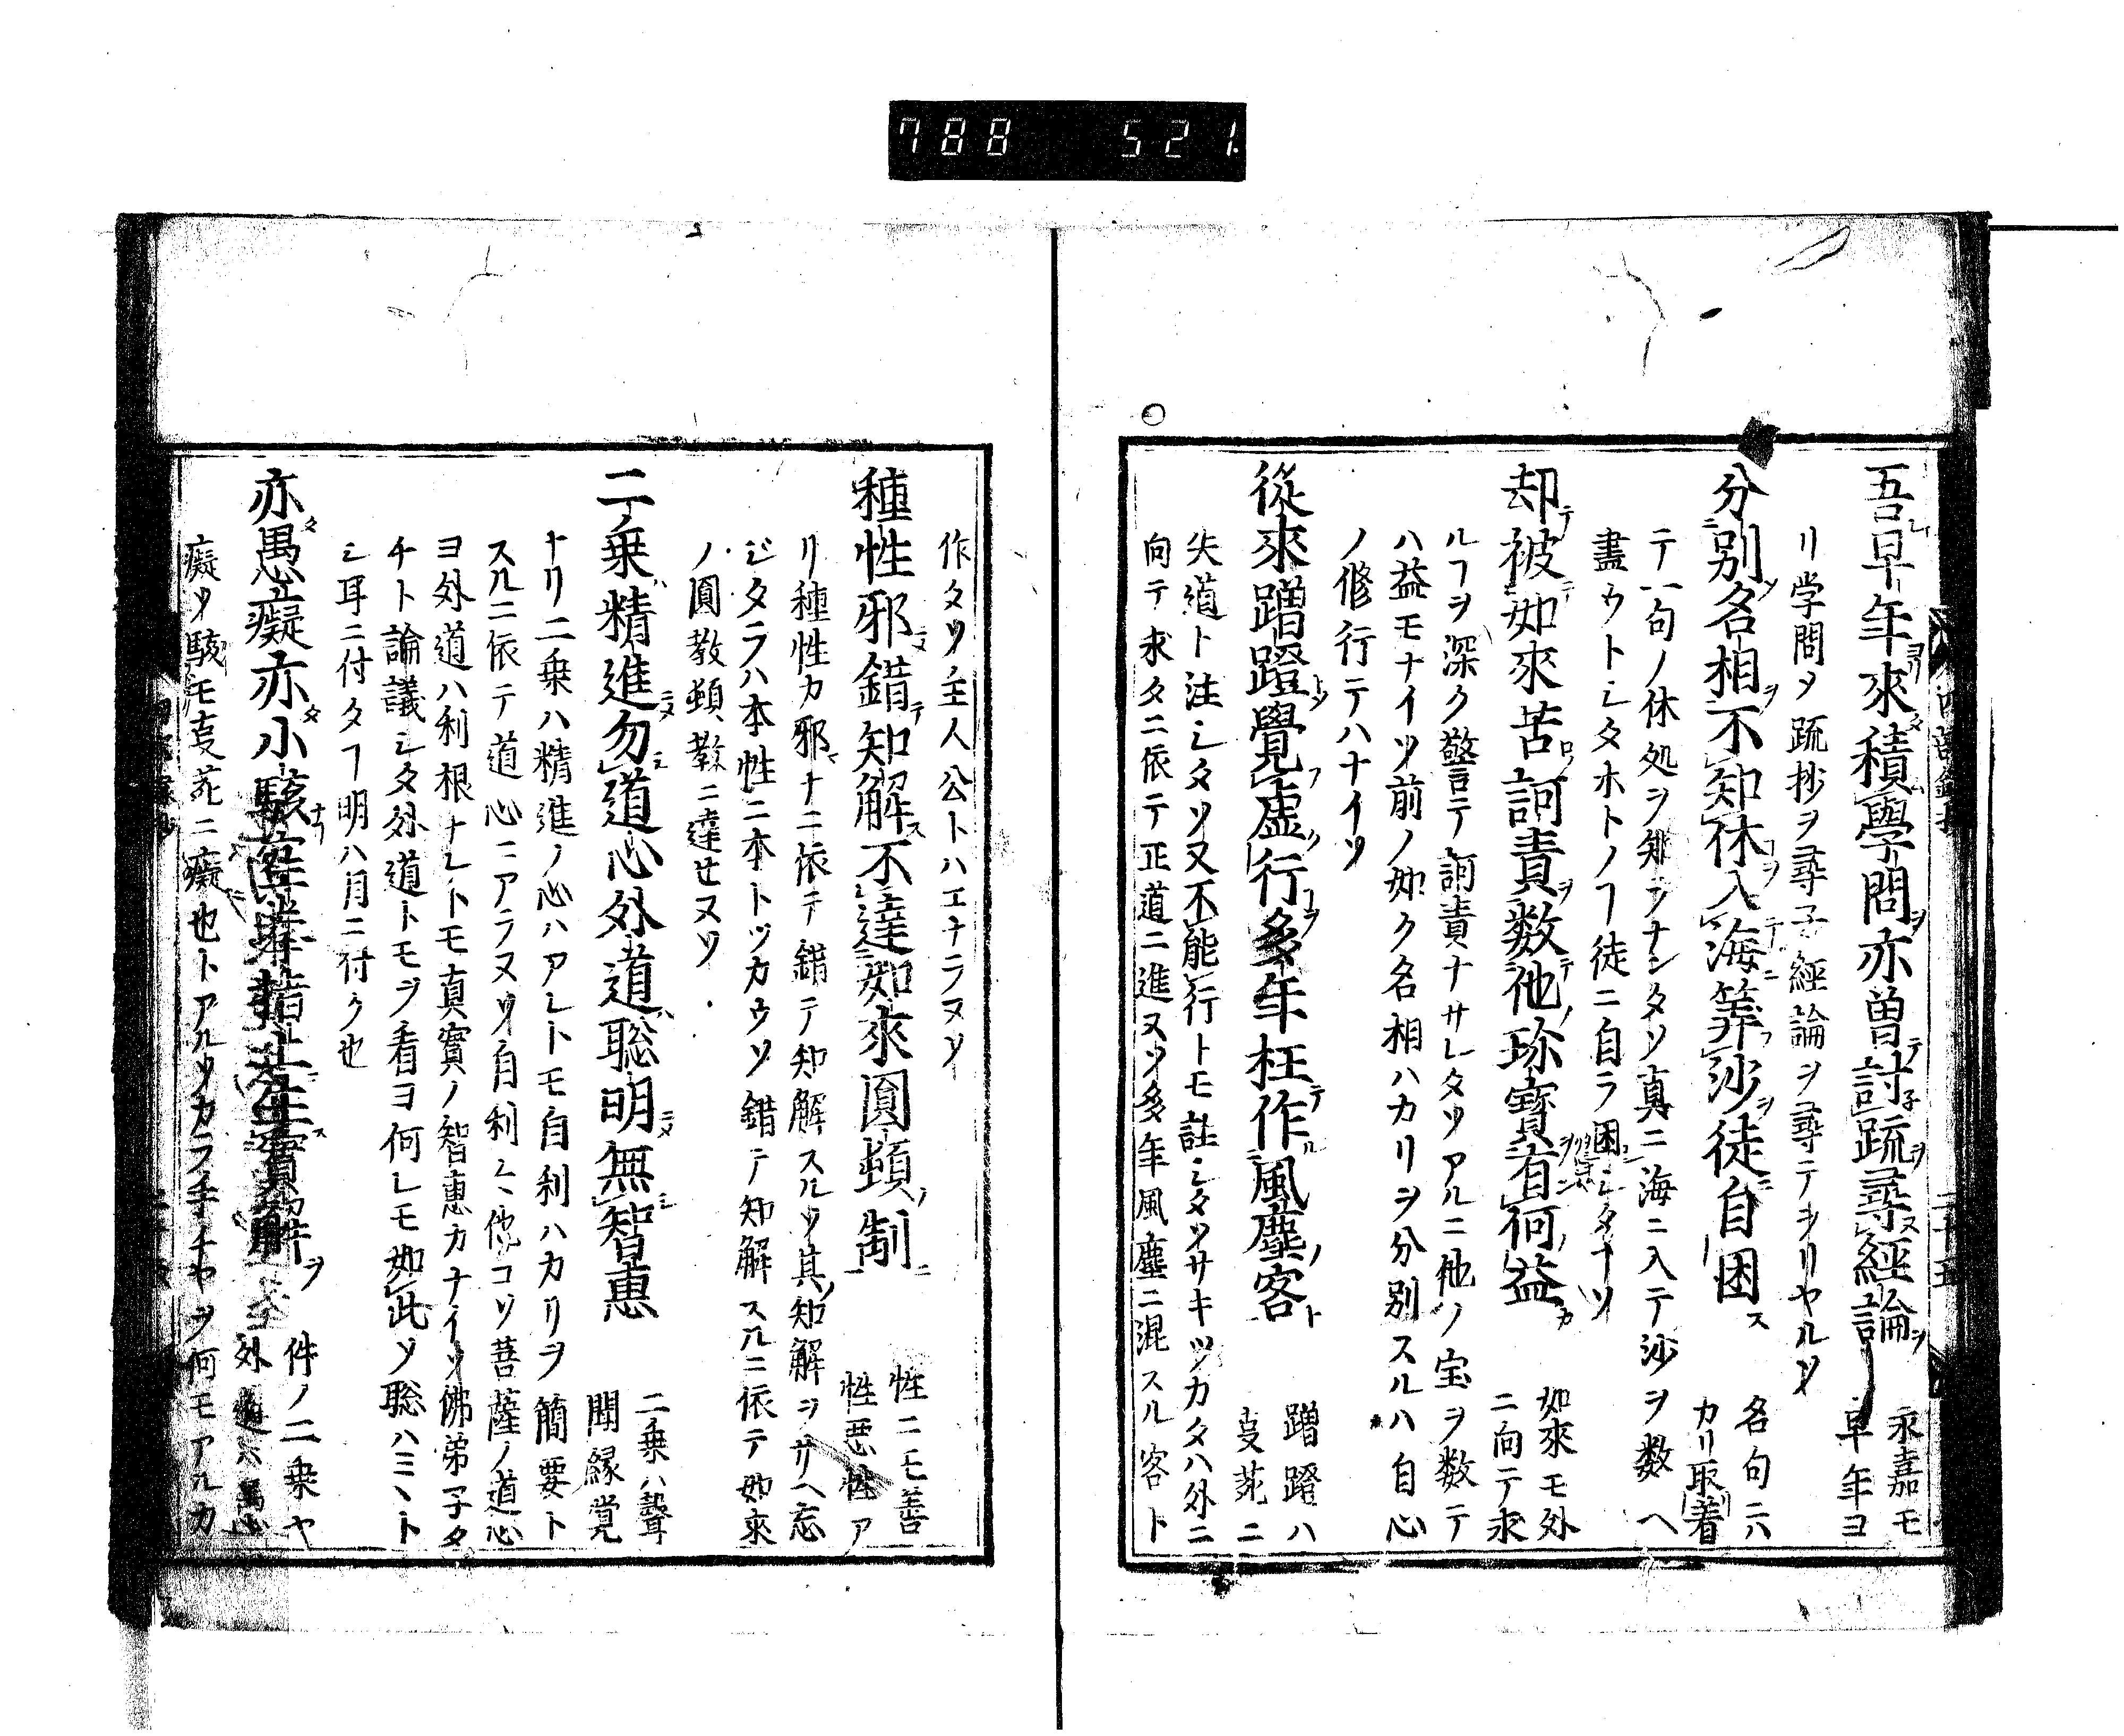 788 521
吾早年來積學問亦曽討疏尋經論 永嘉モ
早年ヨ
リ学問メ疏抄ヲ尋子經論ヲ尋テヲリヤルソ
分別名相不知休入海筭沙徒自困 名句ニハ
カリ取著
テ一句ノ休処ヲ知ラナンタソ真ニ海ニ入テ沙ヲ数ヘ
盡ウトシタホトノヿ徒ニ自ラ困シタナソ
却被如來苦訶責数他珎寳有何益 如來モ外
ニ向テ求
ルヿヲ深ク警テ訶責ナサレタソアルニ他ノ宝ヲ数テ
ハ益モナイソ前ノ如ク名相ハカリヲ分別スルハ自心
ノ修行テハナイソ
從來蹭蹬覺虚行多年枉作風塵客 蹭蹬ハ
夌䓗ニ
失道ト注シタソ又不能行トモ註シタソサキツカタハ外ニ
向テ求タニ依テ正道ニ進ヌソ多年風塵ニ混スル客ト
作タソ主人公トハエナラヌソ
種性邪錯知解不達如來圓頓制 性ニモ善
性悪性ア
リ種性カ邪ナニ依テ錯テ知解スルソ其知解ヲサヘ忘
ジタラハ本性ニ本トツカウソ錯テ知解スルニ依テ如來
ノ圓教頓教ニ達セヌソ
二乗精進勿道心外道聡明無智惠 二乗ハ聲
聞縁覚
ナリ二乗ハ精進ノ心ハアレトモ自利ハカリヲ簡要ト
スルニ依テ道心ニアラヌソ自利々他コソ菩薩ノ道心
ヨ外道ハ利根ナレトモ真實ノ智惠カナイソ佛弟子タ
チト論議シタ外道トモヲ看ヨ何レモ如此ソ聡ハミヽト
シ耳ニ付タヿ明ハ月ニ付ク也
亦愚癡亦小騃空拳指上生實解 件ノ二乗ヤ
外道ハ愚
癡ソ騃モ夌䓗ニ癡也トアルソカラ手チヤヲ何モアルカ